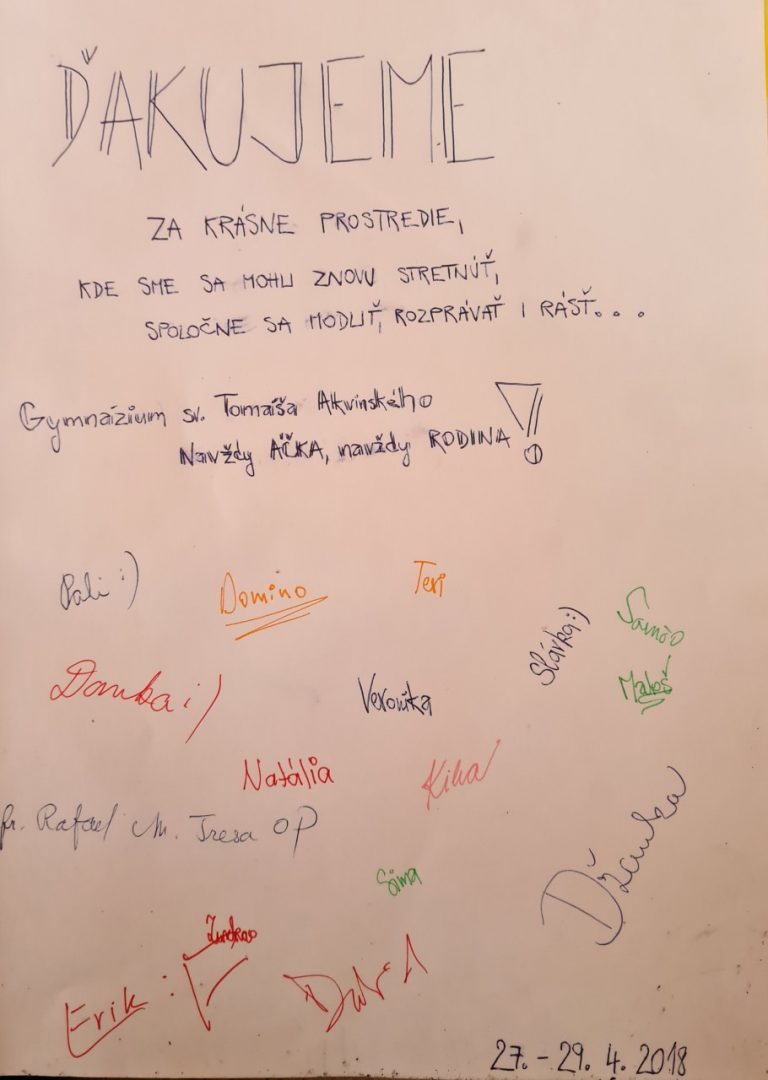 ĎAKUJEME
ZA KRÁSNE PROSTREDIE,
KDE SME SA MOHLI ZNOVU STRETNÚŤ,
SPOLOČNE SA MODLIŤ, ROZPRÁVAŤ I RÁSŤ...
Gymnázium sv. Tomáša Akvinského
Navždy AČKA, navždy RODINA!
Pali :)
Domino
Teri
Slávka :)
Samčo
Matoš
Danka :)
Veronika
Natália
Kika
fr. Rafael M. Tresa OP
Džanka
Sima
Erik :
27. - 29. 4. 2018